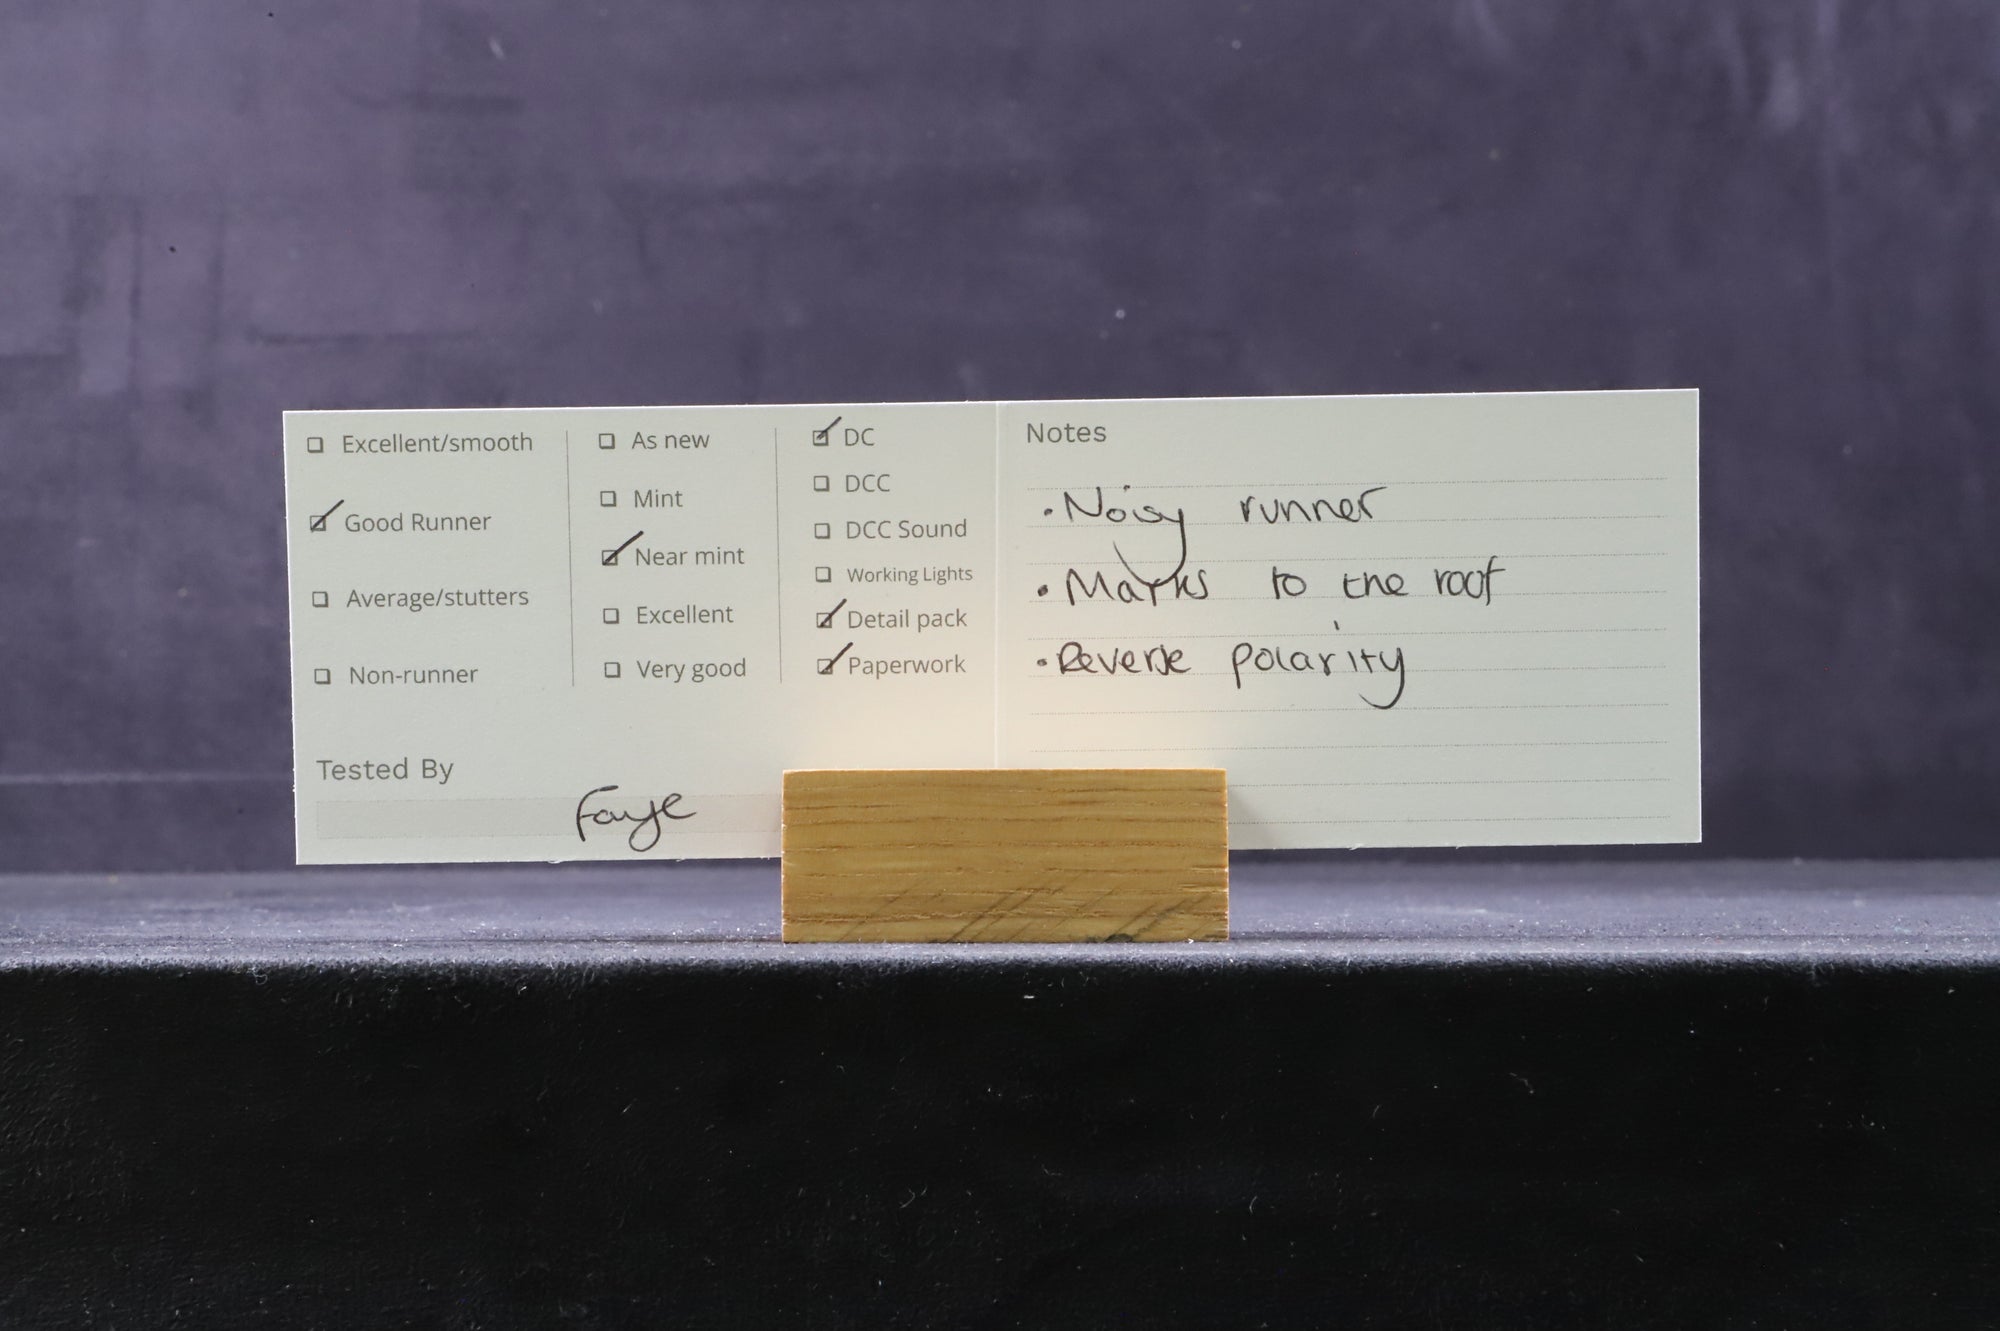 Excellent/smooth
Good Runner
Average/stutters
Non-runner
As new
Mint
Near mint
Excellent
Very good
DC
DCC
DCC Sound
Working Lights
Detail pack
Paperwork
Tested By
Faye
Notes
• Noisy runner
• Marks to the roof
• Reverse polarity